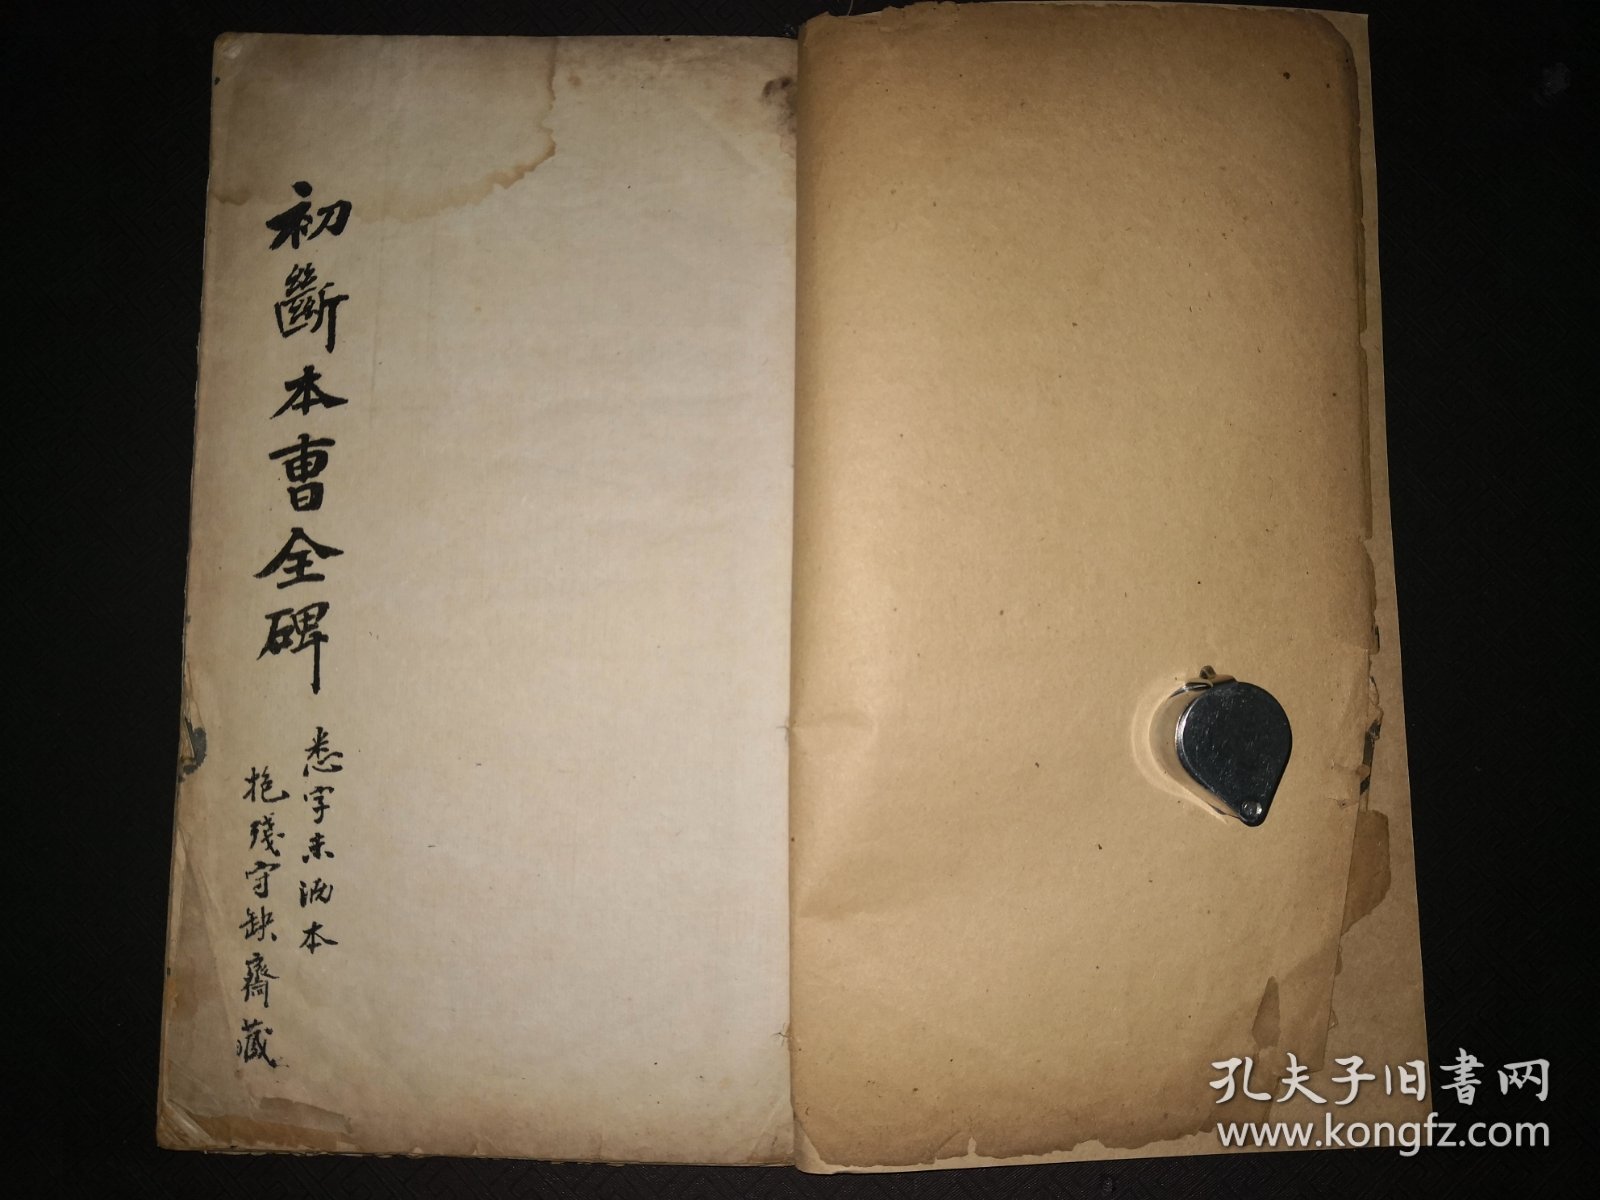 初斷本曹全碑
悉字未泐本
抱殘守缺齋藏
孔夫子旧书网
www.kongfz.com